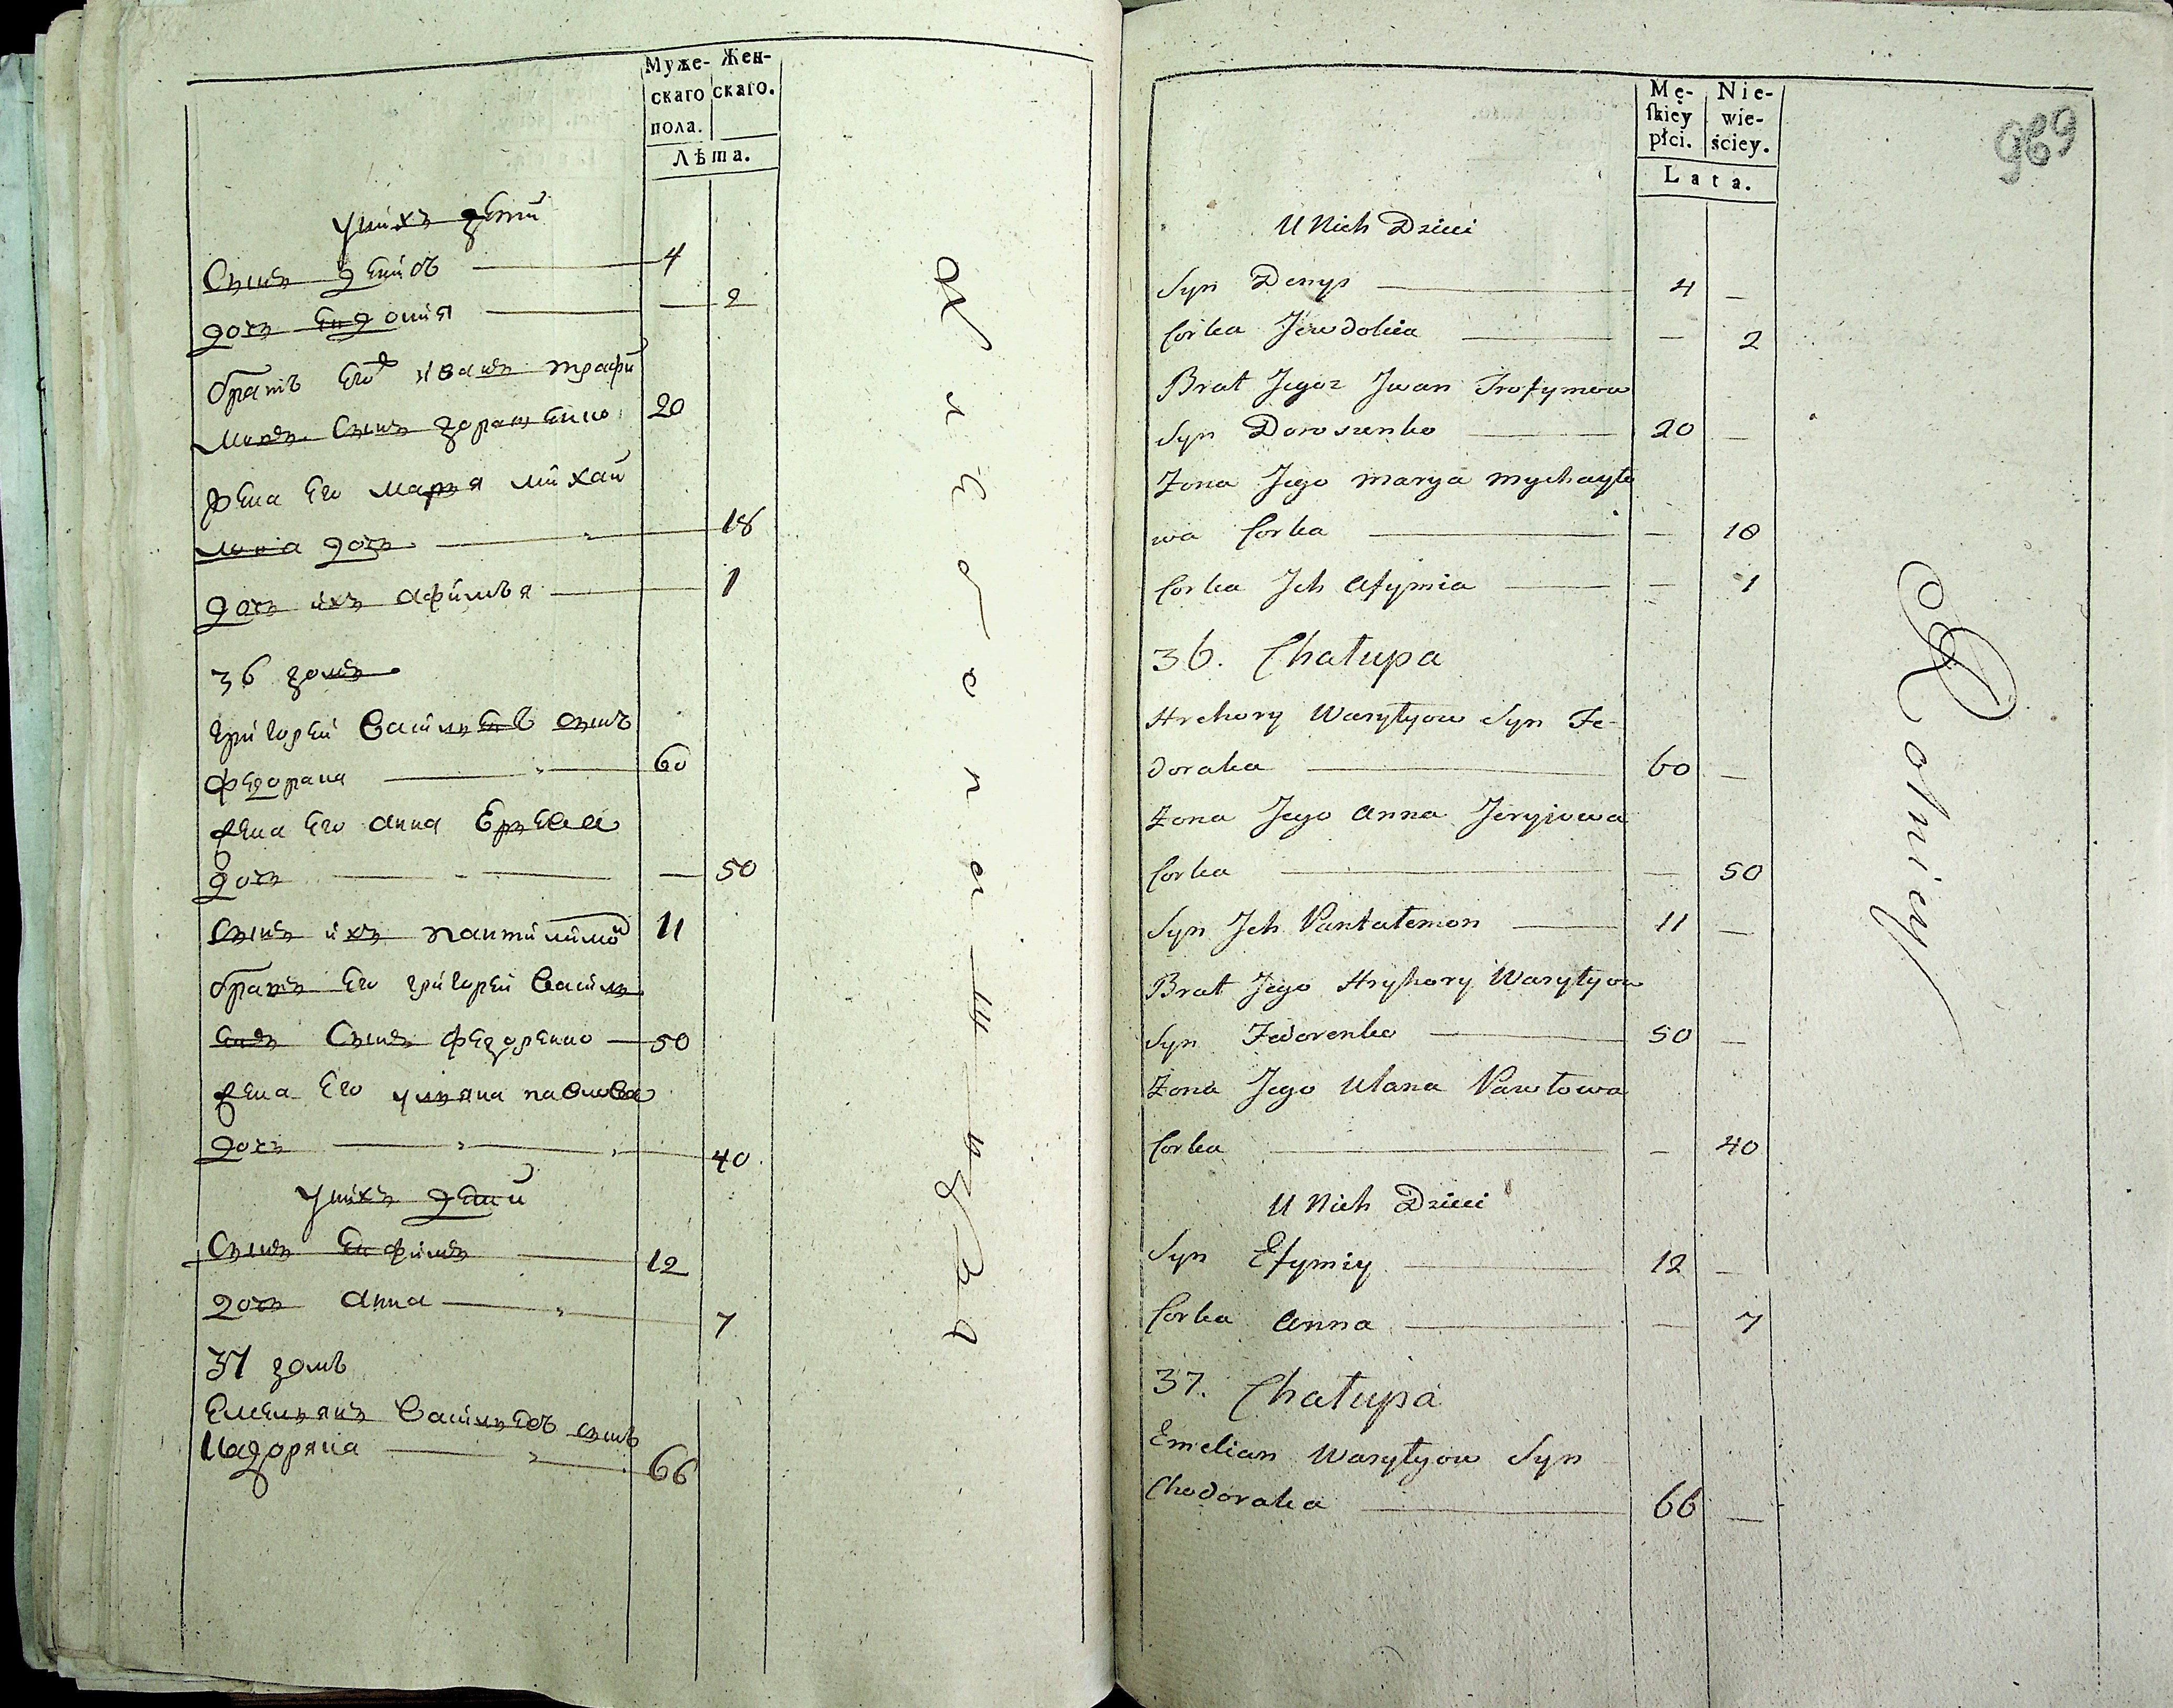 Муже-
скаго
пола.
Жен-
скаго.
Лѣта.
у нихъ дети
Сынъ денисъ 4
дочь Евдокия 2
братъ Его Иванъ трафи
мовъ Сынъ дорашенко 20
жена Его Марья михаи
лова дочь 18
дочь ихъ Афимья 1
36 домъ
григорей Васильевъ сынъ
Федорака 60
жена Его Анна
дочь 50
Сынъ ихъ пантилимон 11
братъ Его григорей Василь
евъ Сынъ Федоренко 50
жена Его ульяна павлова
дочь 40
у нихъ дети
Сынъ Евфимъ 12
дочь Анна 7
37 домъ
Емельянъ Васильевъ сынъ
66
Mę-
ſkiey
płci.
Nie-
wie-
ściey.
Lata.
969
U Nich Dzieci
Syn Denys 4 —
Corka Jewdokia — 2
Brat Jegoz Jwan Trofymow
Syn Doroszenko 20 —
Żona Jego Marya Mychayło
wa Corka — 18
Corka Jch Afymia — 1
36. Chałupa
Hrehory Wasylyow Syn Fe-
doraka 60 —
Żona Jego Anna Jeryiowa
Corka — 50
Syn Jch Pantalemon 11 —
Brat Jego Hryhory Wasylyow
Syn Fedorenko 50 —
Żona Jego Ulana Pawłowa
Corka — 40
U Nich Dzieci
Syn Efymiy 12 —
Corka Anna — 7
37. Chałupa
Emelian Wasylyow Syn
Chodoraka 66 —
Rolniey